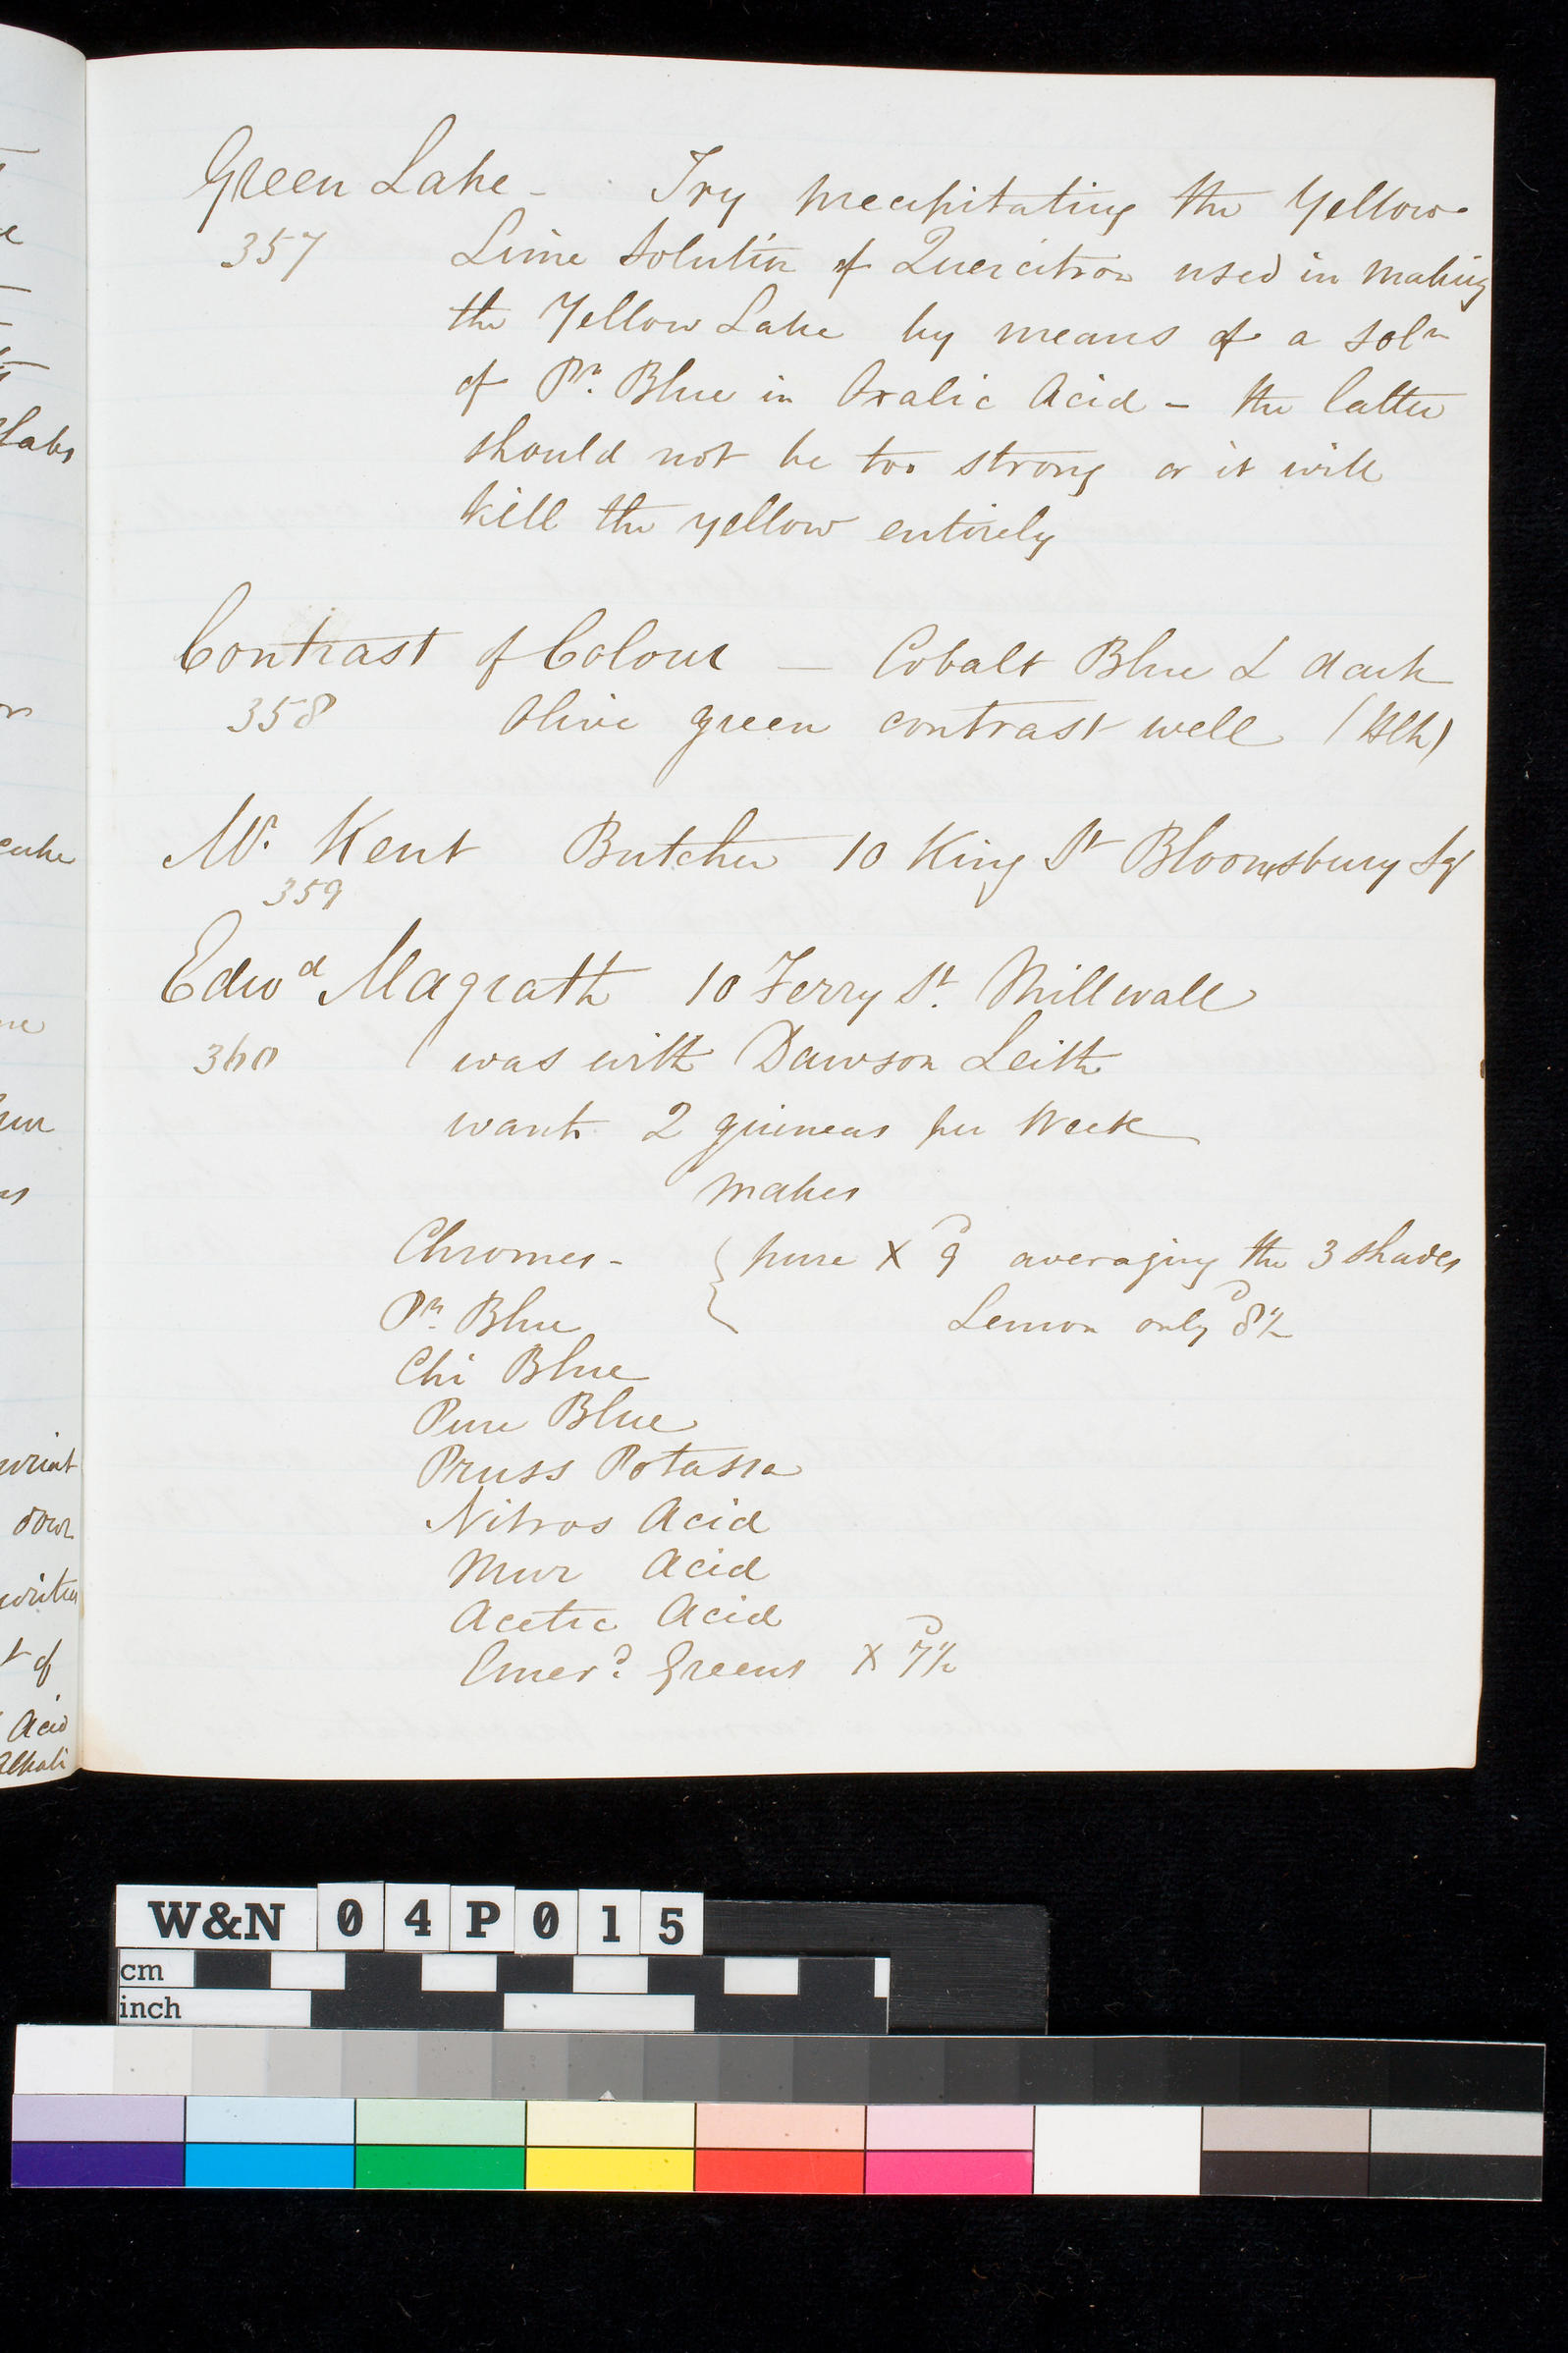 Green Lake - Try precipitating the Yellow
357 Lime Solution of Quercitron used in making
the Yellow Lake by means of a Solⁿ
of Pⁿ. Blue in Oxalic Acid - the latter
should not be too strong or it will
kill the yellow entirely
Contrast of Colour — Cobalt Blue & dark
358 Olive green contrast well
Mr. Kent Butcher 10 King St Bloomsbury Sq
359
Edwᵈ Magrath 10 Ferry Sᵗ. Millwall
360 was with Dawson Leith
wants 2 guineas per Week
makes
Chromes - { pure X 9 averaging the 3 shades
Pⁿ. Blue Lemon only 8½
Chi Blue
Pure Blue
Pruss Potassa
Nitros Acid
Mur Acid
Acetic Acid
Emerᵈ Greens X 7½
W&N 04P015
cm
inch
labs
down
writes
t of
Acid
Alkali